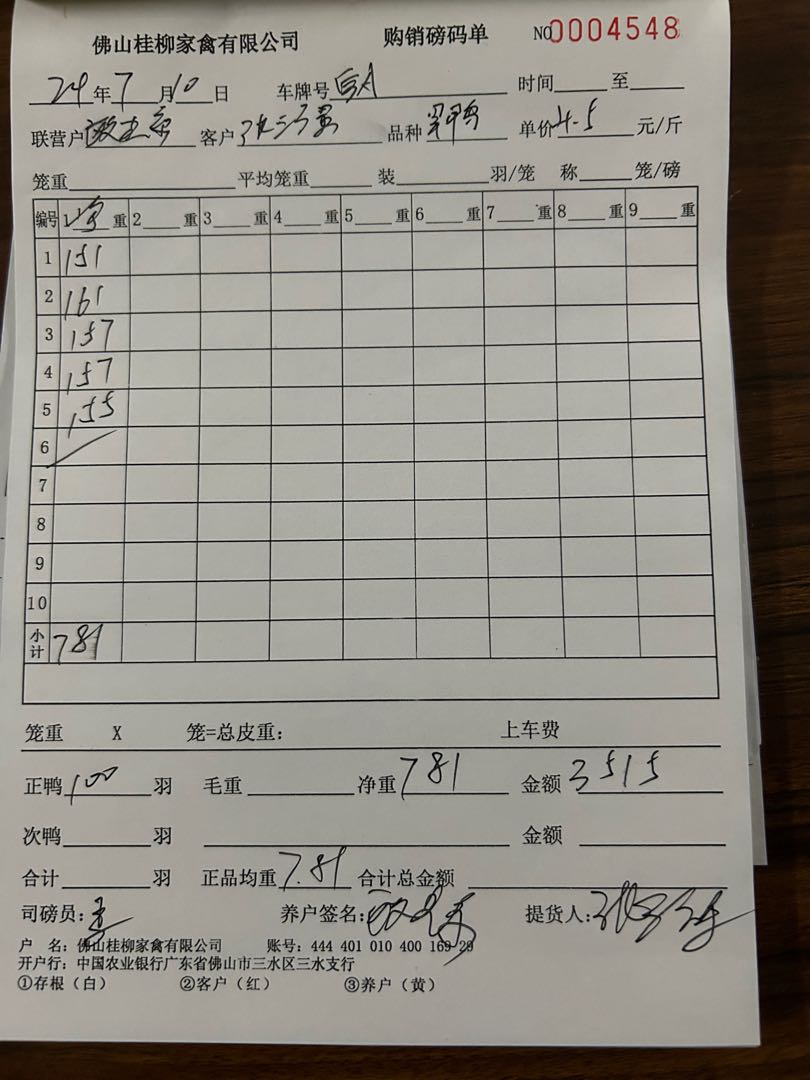 佛山桂柳家禽有限公司 购销磅码单 NO0004548
24年7月10日 车牌号 时间 至
联营户 客户 品种 单价4.5元/斤
笼重 平均笼重 装 羽/笼 称 笼/磅
编号 重 2 重 3 重 4 重 5 重 6 重 7 重 8 重 9 重
1 151
2 161
3 157
4 157
5 155
6
7
8
9
10
小计 781
笼重 X 笼=总皮重: 上车费
正鸭100羽 毛重 净重781 金额3515
次鸭 羽 金额
合计 羽 正品均重7.81 合计总金额
司磅员: 养户签名: 提货人:
户 名: 佛山桂柳家禽有限公司 账号: 444 401 010 400 169 29
开户行: 中国农业银行广东省佛山市三水区三水支行
①存根(白) ②客户(红) ③养户(黄)